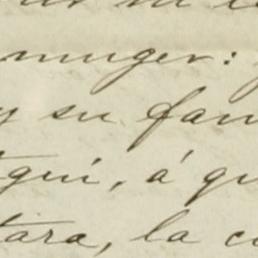 muger:
y su fam
tegui, á qu
tara, la c